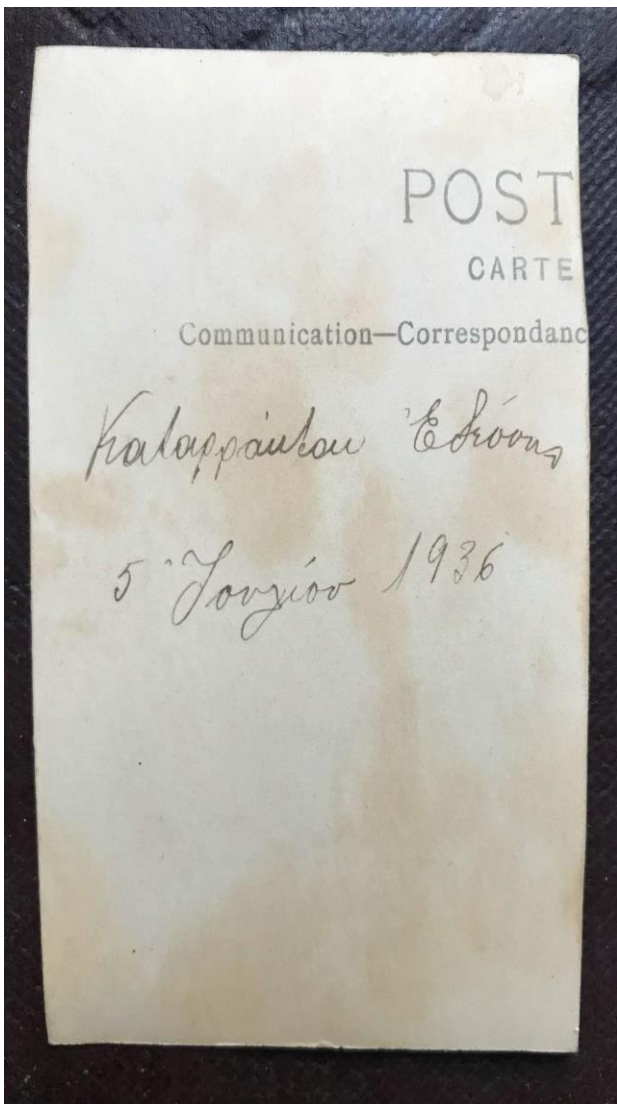 POST
CARTE
Communication—Correspondanc
Καταρράκται Ἐδέσσης
5 Ἰουλίου 1936